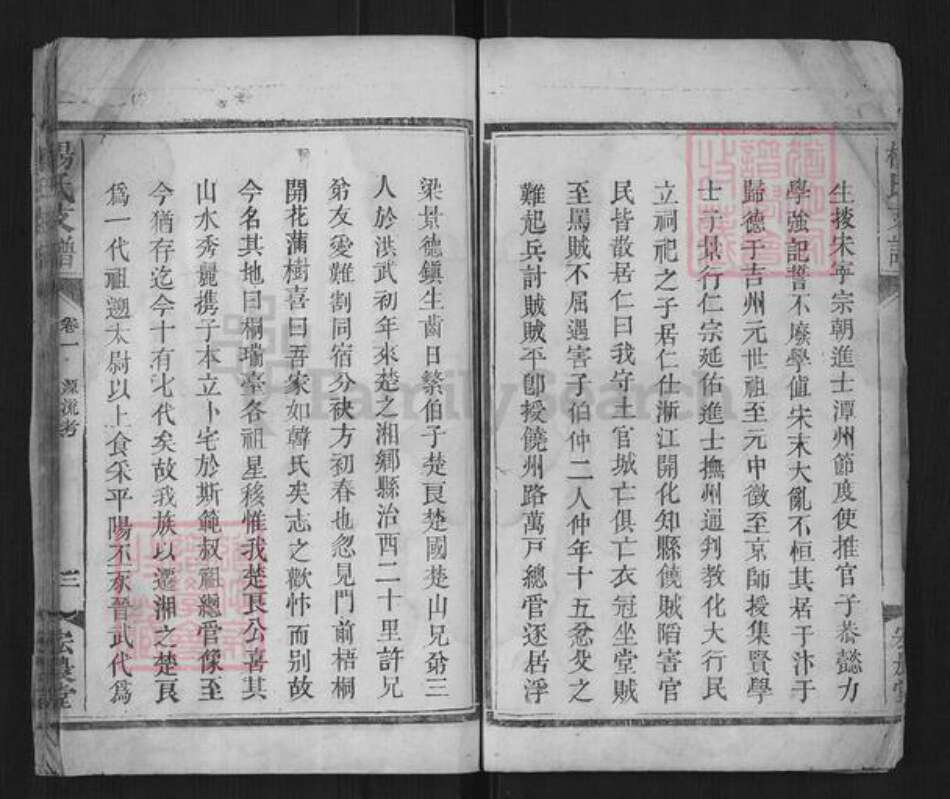 生掞宋寧宗朝進士潭州節度使推官子恭懿力
學強記誓不廢學値宋末大亂不恒其居于汴于
歸德于吉州元世祖至元中徵至京師授集賢學
士子景行仁宗延佑進士撫州通判教化大行民
立祠祀之子居仁仕浙江開化知縣饒賊陷害官
民皆散居仁曰我守土官城亡俱亡衣冠坐堂賊
至罵賊不屈遇害子伯仲二人仲年十五忿父之
難起兵討賊賊平卽授饒州路萬戸總管逐居浮
梁景德鎭生齒日繁伯子楚良楚國楚山兄弟三
人於洪武初年來楚之湘鄉縣治西二十里許兄
弟友愛難割同宿分袂方初春也忽見門前梧桐
開花蒲樹喜曰吾家如韓氏矣志之歡忭而別故
今名其地曰桐瑞臺各祖星移惟我楚良公喜其
山水秀麗携子本立卜宅於斯範叔祖總管像至
今猶存迄今十有七代矣故我族以遷湘之楚良
爲一代祖遡太尉以上食采平陽至東晉武代爲
楊氏支譜
卷一
源流考
三
宏農堂
FamilySearch